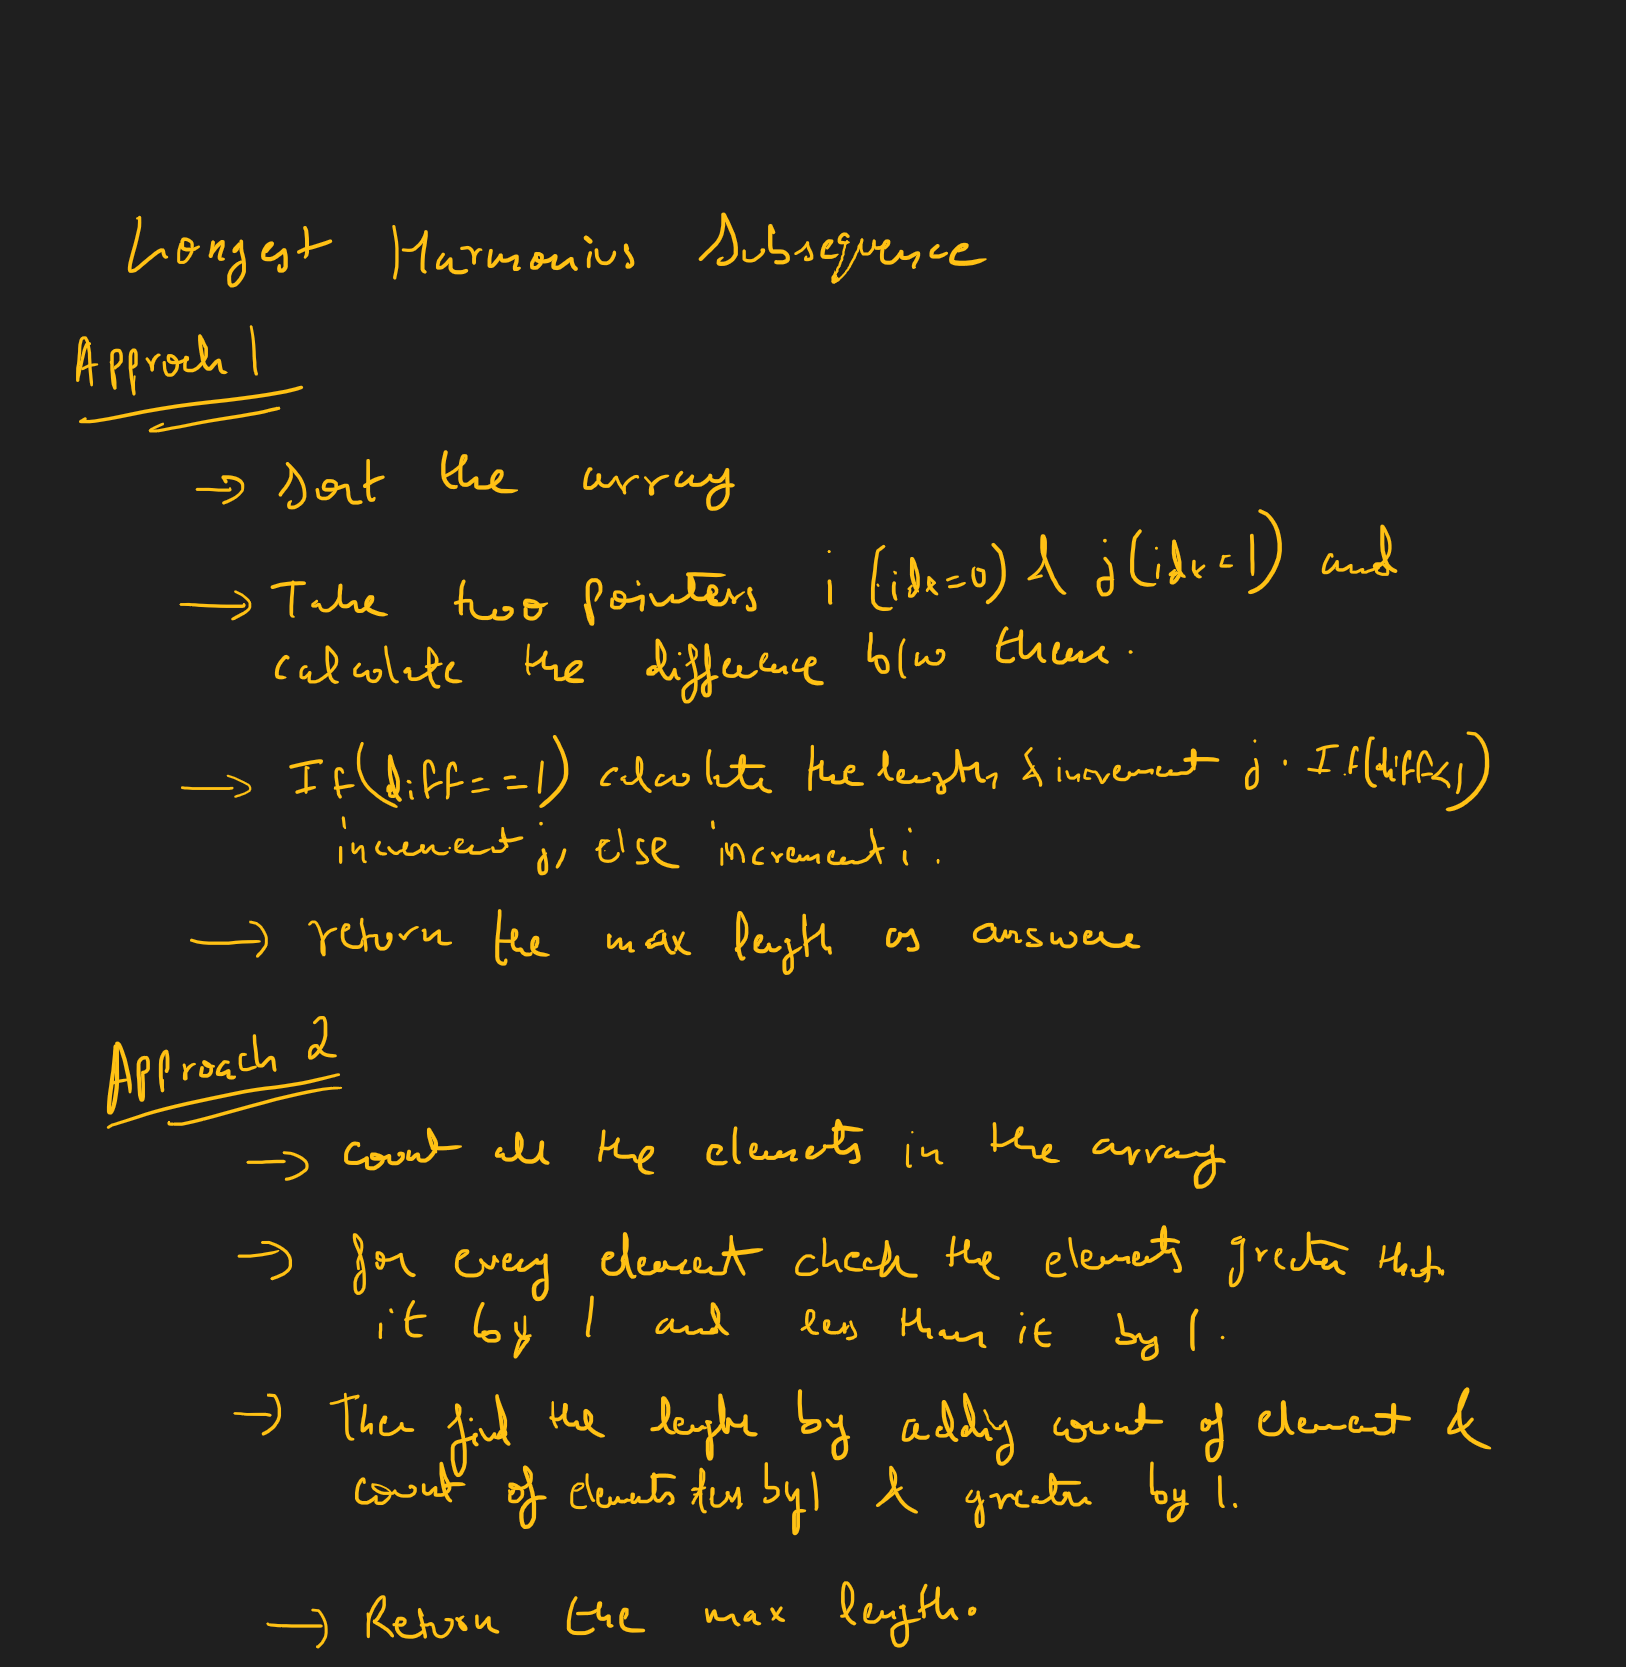 Longest Harmonius Subsequence
Approch 1
→ Sort the array
→ Take two pointers i (idx=0) & j (idx=1) and
calculate the difference b/w them.
→ If(diff==1) calculate the length & increment j. If(diff<1)
increment j, else increment i.
→ return the max length as answere
Approach 2
→ count all the elements in the array
→ for every element check the elements greater than
it by 1 and less than it by 1.
→ Then find the length by adding count of element &
count of elements less by 1 & greater by 1.
→ Return the max length.